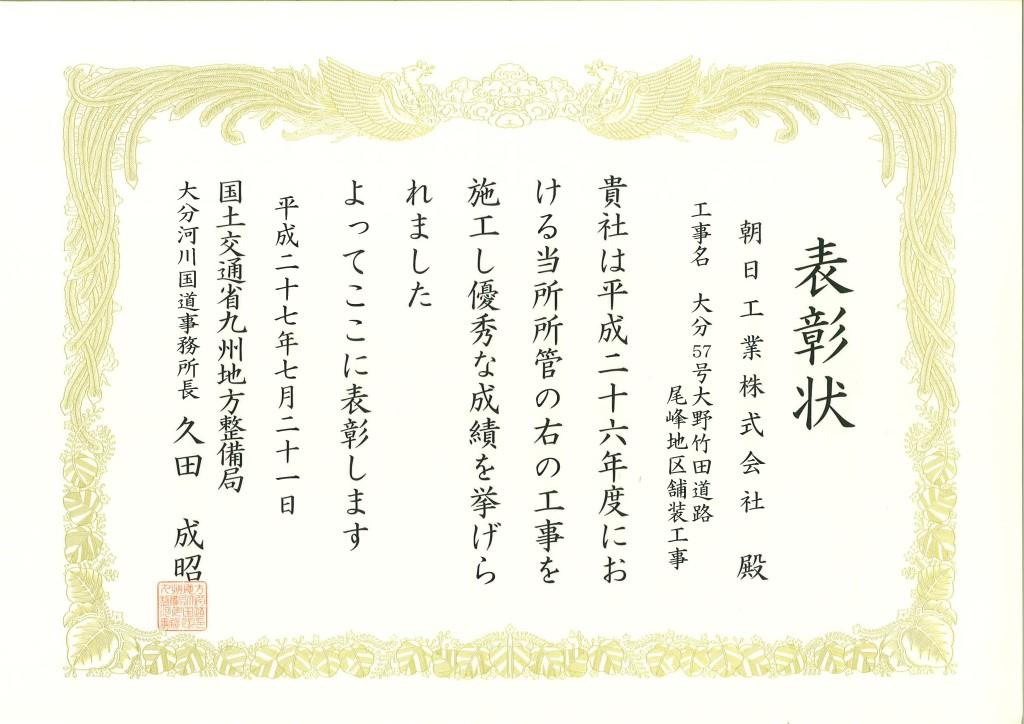 表彰状
朝日工業株式会社 殿
工事名 大分57号大野竹田道路
尾峰地区舗装工事
貴社は平成二十六年度にお
ける当所所管の右の工事を
施工し優秀な成績を挙げら
れました
よってここに表彰します
平成二十七年七月二十一日
国土交通省九州地方整備局
大分河川国道事務所長 久田 成昭